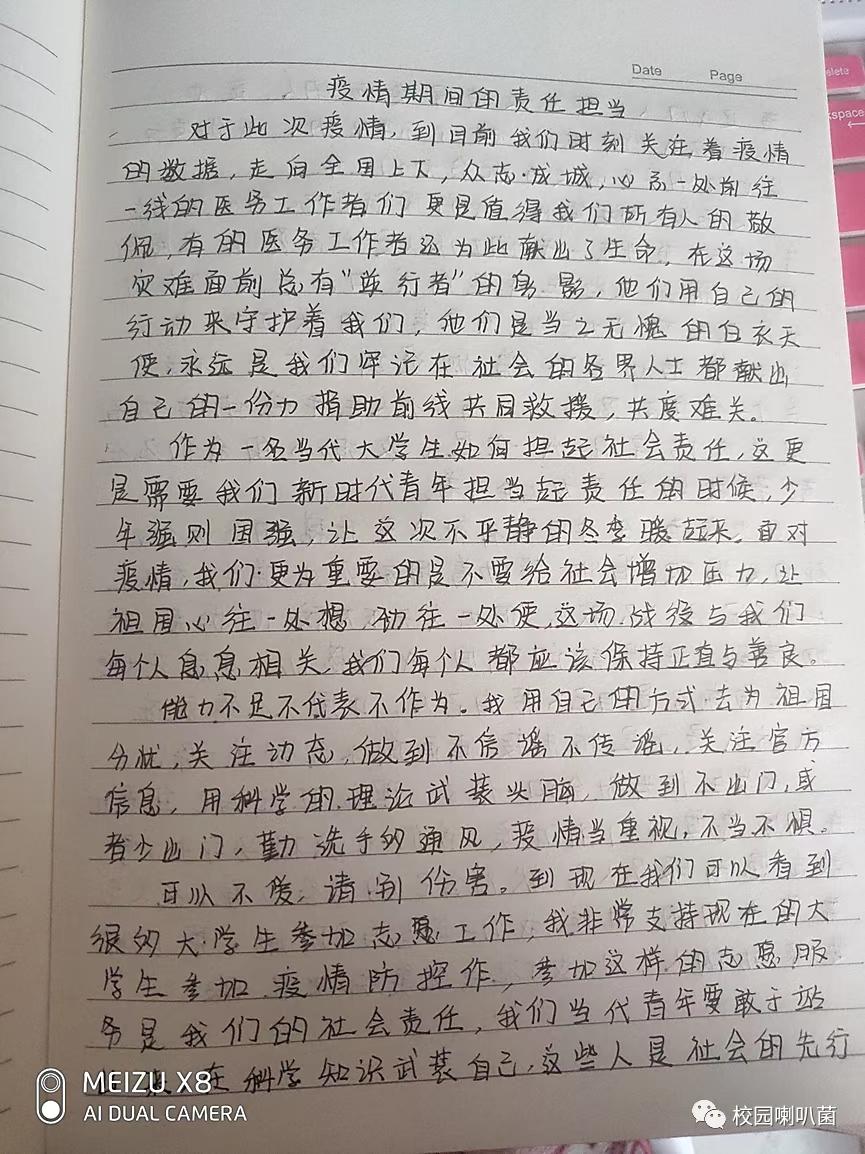 Date Page
疫情期间的责任担当
对于此次疫情，到目前我们时刻关注着疫情
的数据，走向全国上下，众志成城，心系一处前往
一线的医务工作者们更是值得我们所有人的敬
佩，有的医务工作者还为此献出了生命，在这场
灾难面前总有“逆行者”的身影，他们用自己的
行动来守护着我们，他们是当之无愧的白衣天
使，永远是我们牢记在社会的各界人士都献出
自己的一份力捐助前线共同救援，共度难关。
作为一名当代大学生如何担起社会责任，这更
是需要我们新时代青年担当起责任的时候，少
年强则国强，让这次不平静的冬季暖起来，面对
疫情，我们更为重要的是不要给社会增加压力，让
祖国心往一处想，劲往一处使，这场战役与我们
每个人息息相关，我们每个人都应该保持正直与善良。
能力不足不代表不作为。我用自己的方式去为祖国
分忧，关注动态，做到不信谣不传谣，关注官方
信息，用科学的理论武装头脑，做到不出门，或
者少出门，勤洗手多通风，疫情当重视，不当不惧。
可以不爱，请别伤害。到现在我们可以看到
很多大学生参加志愿工作，我非常支持现在的大
学生参加疫情防控作，参加这样的志愿服
务是我们的社会责任，我们当代青年要敢于站
在科学知识武装自己，这些人是社会的先行
MEIZU X8
AI DUAL CAMERA
校园喇叭菌
elete
kspace